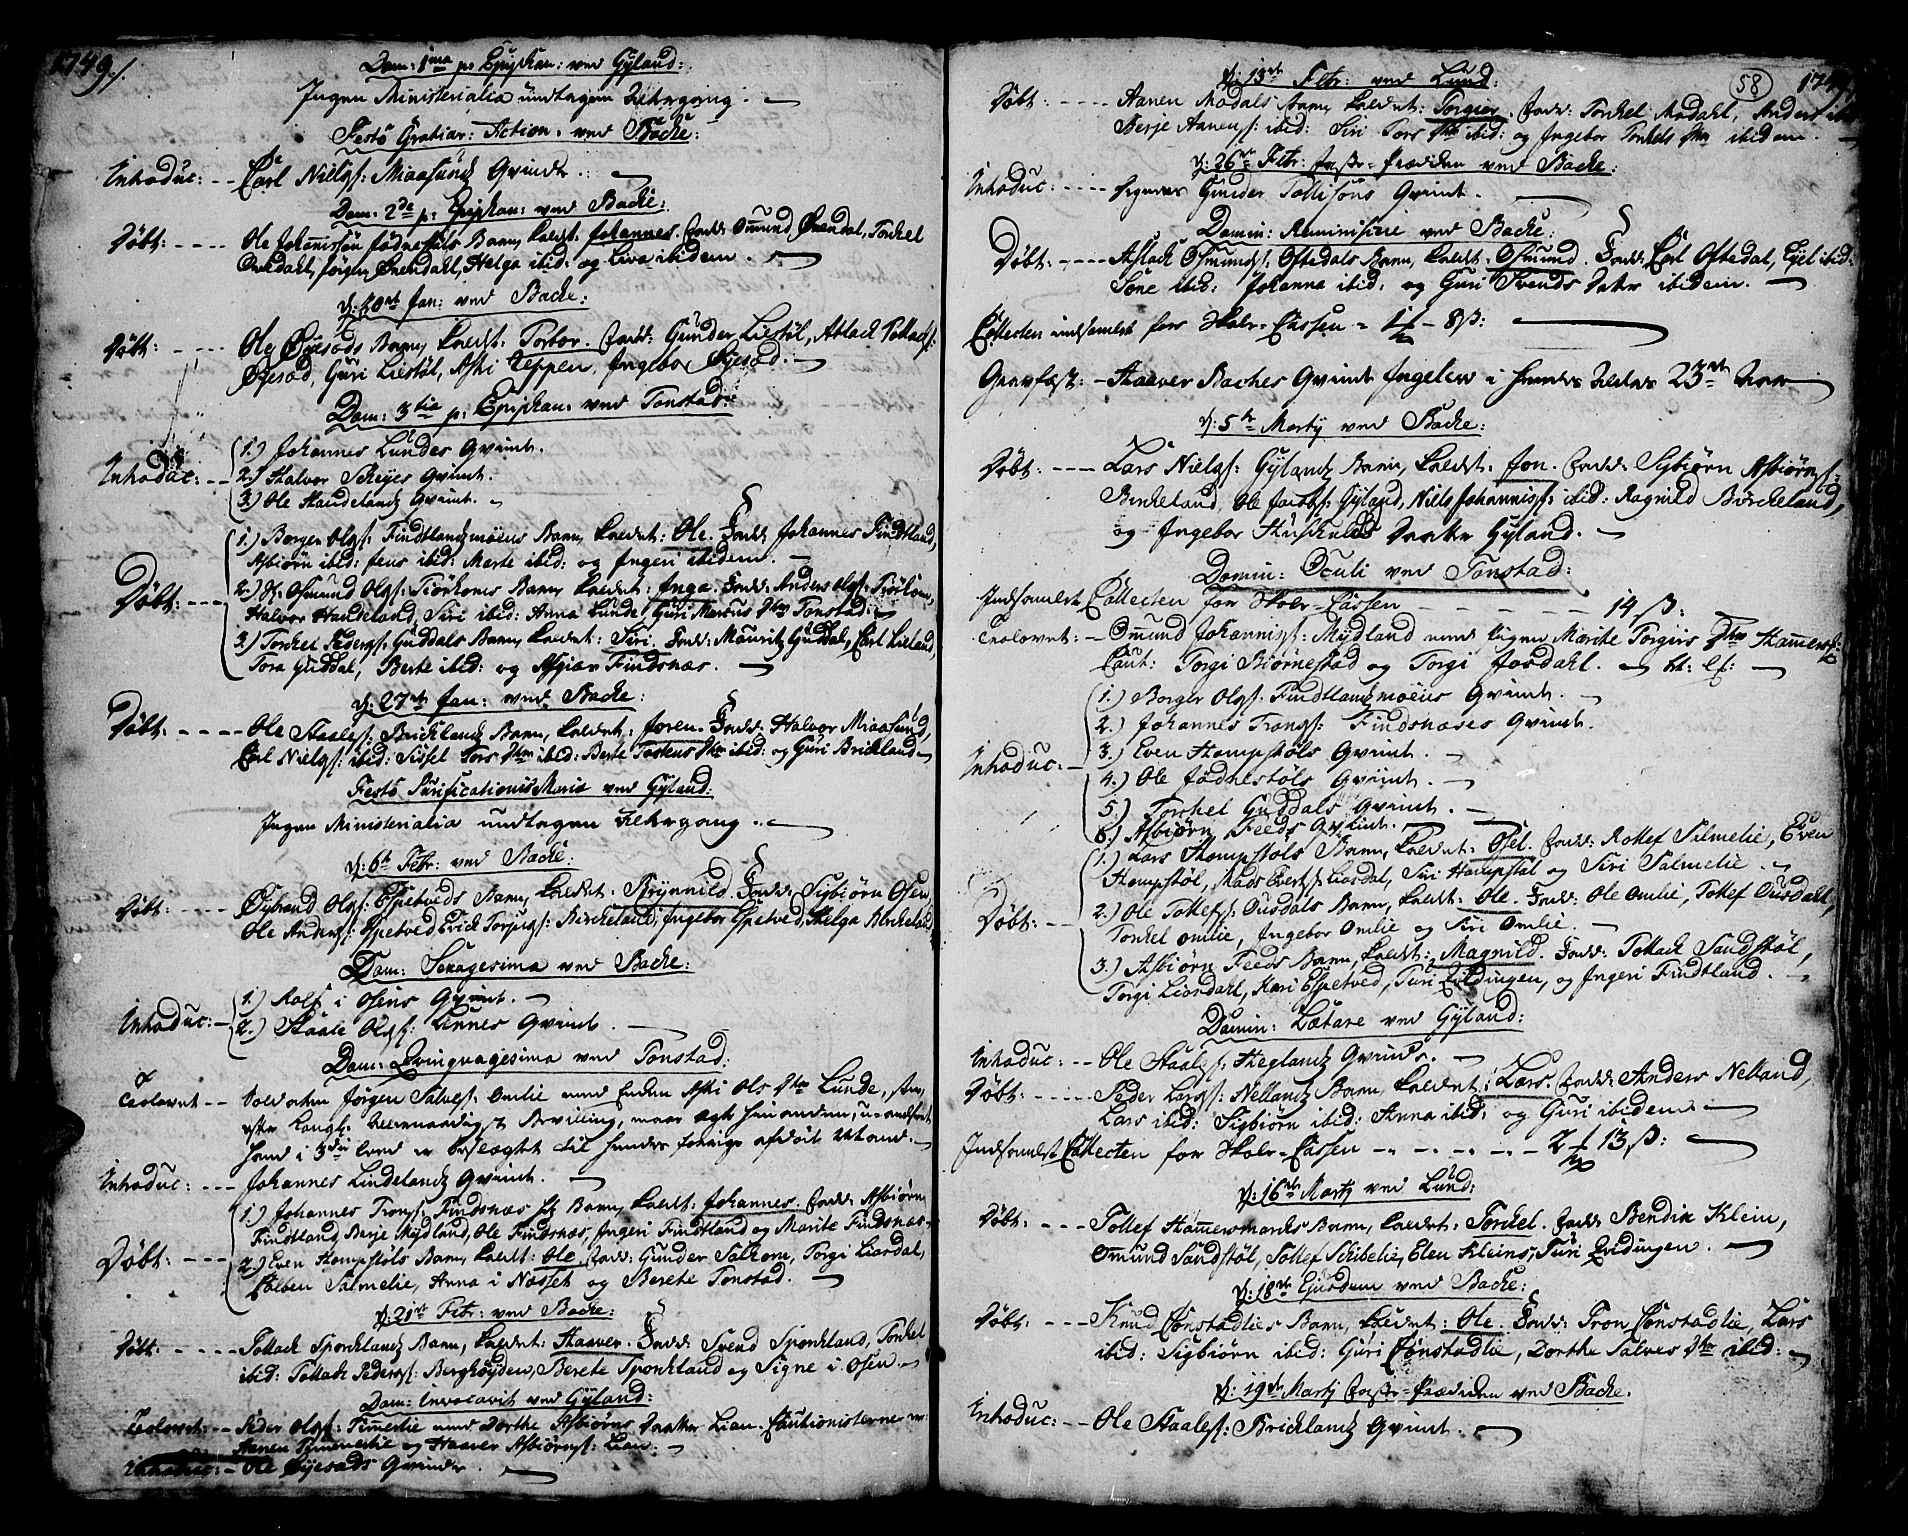 1749.
Dom: 1ma p: Epiphan: ved Gÿland:
Ingen Ministerialia undtagen Altergang.
Festo Gratiar: Action: ved Backe:
Introduc: Carl Nielss: Miaasunds Qvinde.
Dom: 2de p: Epiphan: ved Backe:
Døbt: Ole Johannissøn Jødnestøls Barn, kaldet: Johannes. Fadd: Omund Øvendal, Tonkel
Øvendahl, Jørgen Øvendahl, Helga ibid: og Liva ibidem.
d: 20de Jan: ved Backe:
Døbt: Ole Øÿesads Barn, kaldet: Torbor. Fadd: Gunder Liestøl, Atlack Tollachs:
Øÿesad, Guri Liestøl, Aski Teppen, Ingebor Øÿesad.
Dom: 3tia p: Epiphan: ved Tonstad:
1.) Johannes Lundes Qvinde.
Introduc: 2.) Halvor Skeÿes Qvinde.
3.) Ole Haudelands Qvinde.
1.) Børger Olss: Findtlandsmoens Barn, kaldet: Ole. Fadd: Johannes Findtland,
Asbiørn ibid: Jens ibid: Marte ibid: og Ingeri ibidem.
Døbt: 2.) Osmund Olss: Tiørhoms Barn, kaldet: Inga. Fadd: Anders Olss: Tiørhom,
Halvor Haudeland, Siri ibid: Anna Lunde, Guri Marcus Dter Tonstad:
3.) Tonkel Peders: Guddals Barn, kaldet: Siri. Fadd: Mauritz Guddal, Carl Lieland,
Tora Guddal, Berte ibid: og Asgiær Findsnæs.
d: 27de Jan: ved Backe:
Døbt: Ole Staaless: Bricklands Barn, kaldet: Joren. Fadd: Halvor Miaasund,
Carl Nielss: ibid: Sissel Tors Dter ibid: Berte Torkels Dter ibid: og Guri Brickland
Festo Purificationis Maria ved Gÿland:
Ingen Ministerialia undtagen Altergang.
d: 6te Febr: ved Backe:
Døbt: Øÿvind Olss: Espetveds Barn, kaldet: Rønnild. Fadd: Sigbiørn Osen,
Ole Anders: Espetved, Erick Torgiess: Birckeland, Ingebor Espetved, Helga Birckeland
Dom: Sexagesima ved Backe:
1.) Rolf i Osens Qvinde.
Introduc: 2.) Staale Olss: Linnes Qvinde.
Dom: Qvinquagesima ved Tonstad:
Troloved Soldaten Jørgen Salves: Omlie med Enken Aski Ols Dter Lunde,
efter Kongl: allernaadigst Bevilling, maae ægte hinanden,
hand i 3die Leed er beslægtet til hendes forrige afdøde Mand.
Introduc: Johannes Lindelands Qvinde.
1.) Johannes Trons: Findsnæs Barn, kaldet: Johannes. Fadd: Asbiørn
Findtland, Berje Mÿdland, Ole Findsnæs, Ingeri Findtland og Marite Findsnæs.
Døbt: 2.) Even Hompstøls Barn, kaldet: Ole. Fadd: Gunder Salkom, Torgi Liørdal,
Colben Salmelie, Anna i Nasset og Berete Tonstad.
d: 21de Febr: ved Backe:
Døbt: Tollack Sporklands Barn, kaldet: Haaver. Fadd: Svend Sporkland, Tonkel
ibid: Tollack Peders: Berghøÿden, Berete Sporkland og Signe i Osen.
Dom: Invocavit ved Gÿland:
Troloved: Peder Olss: Timmerlie med Dorthe Asbiørns Daatter Lian. Cautionisterne er:
Aanen Timmerlie og Haaver Asbiørns: Lian.
Introduc: Ole Øÿesads Qvinde.
58
1749.
d: 13de Febr: ved Lund:
Døbt: Aanen Modals Barn, kaldet: Torgier. Fadd: Tonkel Modahl, Anders ibid
Berje Aanens: ibid: Siri Tors Dter ibid: og Ingebor Tonkels Dter ibidem.
d: 26de Febr: Faste-Prædiken ved Backe:
Introduc: Gunder Tollisøns Qvinde.
Domin: Reminiscere ved Backe:
Døbt: Aslack Osmunds: Oftedals Barn, kaldet: Osmund. Fadd: Carl Oftedal, Eÿel ibid:
Tone ibid: Johanna ibid: og Guri Svends Datter ibidem.
Collecten indsamlet for Skole-Cassen = 1 – 8 ß:
Gravfæst: Haaver Backes Qvinde Ingelev i hendes Alders 23de Aar
d: 5te Martij ved Backe:
Døbt: Lars Nielss: Gÿlands Barn, kaldet: Jon. Fadd: Sigbiørn Asbiørns:
Birckeland, Ole Jacobs: Gÿland, Niels Johanniss: ibid: Ragnild Birckeland,
og Ingebor Datter Gÿland.
Domin: Oculi ved Tonstad:
Indsamlet Collecten for Skole-Cassen 14 ß:
Troloved: Omund Johanniss: Mÿdland med Pigen Marite Torgirs Dter Hamersm:
Caut: Torgi Biørnestad og Torgi Josdahl.
1.) Børger Olss: Findtlandsmoens Qvinde.
2.) Johannes Trons: Findsnæses Qvinde.
3.) Even Hompstøls Qvinde.
Introduc: 4.) Ole Jødnestøls Qvinde.
5.) Tonkel Guddals Qvinde.
6.) Asbiørn Feeds Qvinde.
1.) Lars Hompstøls Barn, kaldet: Osel. Fadd: Rollef Salmelie, Even
Hompstøl, Mads Everts: Liørdal, Siri Hompstøl og Siri Salmelie.
Døbt: 2.) Ole Tollefs: Ousdals Barn, kaldet: Ole. Fadd: Ole Omlie, Tollef Ousdahl,
Tonkel Omlie, Ingebor Omlie og Siri Omlie.
3.) Asbiørn Feeds Barn, kaldet: Magnild. Fadd: Tollack Sandstøl,
Torgi Liørdahl, Kari Espetved, Turi Qvidingen, og Ingeri Findtland.
Domin: Lætare ved Gÿland:
Introduc: Ole Staaless: Heglands Qvinde.
Døbt: Peder Larss: Nellands Barn, kaldet: Lars. Fadd: Anders Nelland,
Lars ibid: Sigbiørn ibid: Anna ibid: og Guri ibidem.
Indsamlet Collecten for Skole-Cassen 2 13 ß:
d: 16de Martij ved Lund:
Døbt: Tollef Hamersmarks Barn, kaldet: Tonkel. Fadd: Bendix Klein,
Omund Sandstøl, Tollef Skibelie, Elen Kleins, Turi Qvidingen.
d: 18de Ejusdem ved Backe:
Døbt: Knud Constadlies Barn, kaldet: Ole. Fadd: Tron Constadlie, Lars
ibid: Sigbiørn ibid: Guri Constadlie, Dorthe Salves Dter ibid:
d: 19de Martij Faste-Prædiken ved Backe.
Introduc: Ole Staaless: Bricklands Qvinde.